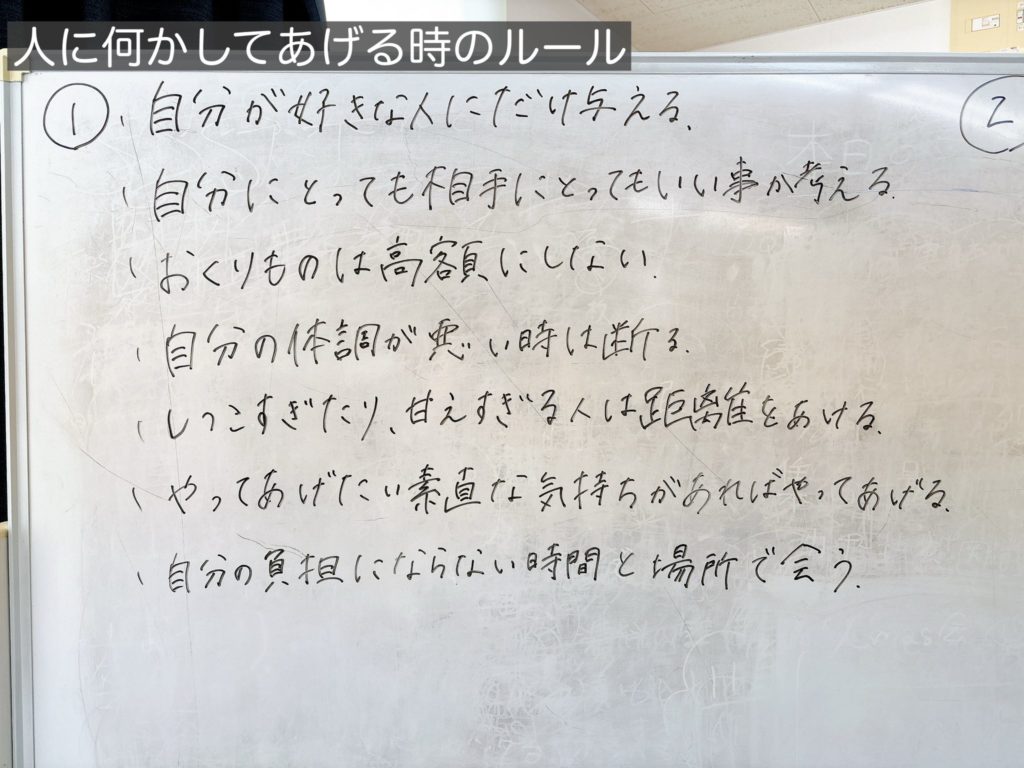 人に何かしてあげる時のルール
① ・自分が好きな人にだけ与える。
・自分にとっても相手にとってもいい事か考える。
・おくりものは高額にしない。
・自分の体調が悪い時は断る。
・しつこすぎたり、甘えすぎる人は距離をあける。
・やってあげたい素直な気持ちがあればやってあげる。
・自分の負担にならない時間と場所で会う。
②